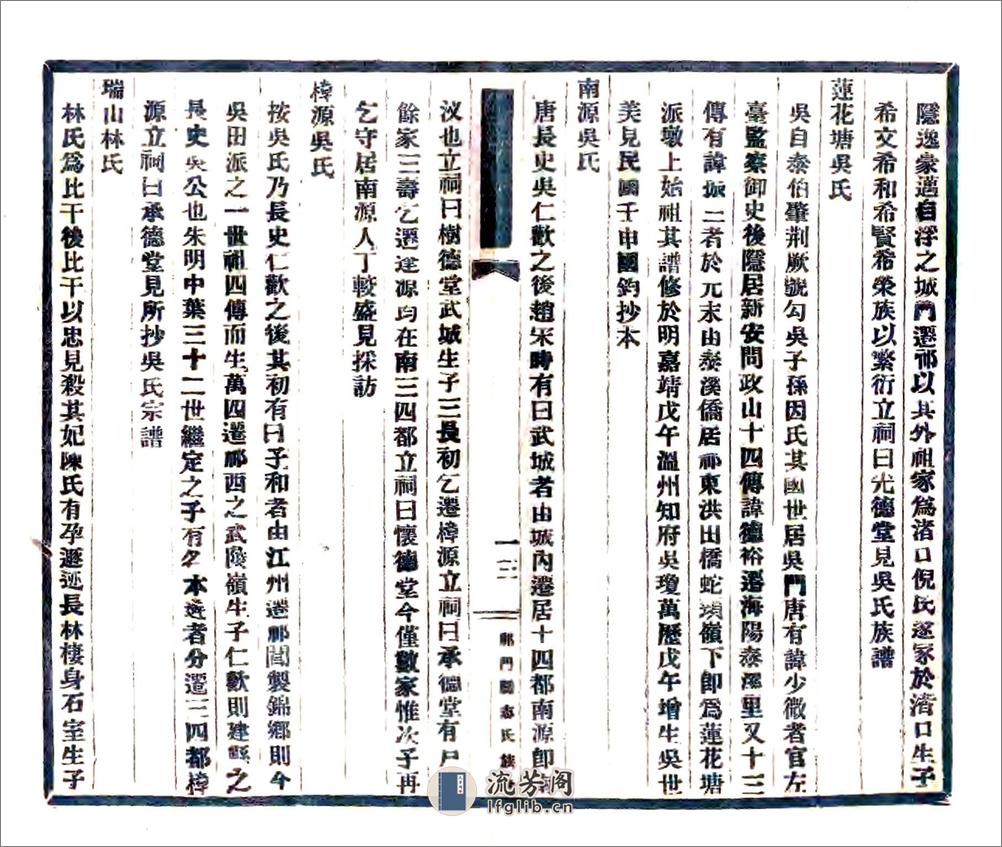 隱逸豪邁自浮之城門遷祁以其外祖家爲渚口倪氏遂家於渚口生子
希文希和希賢希榮族以繁衍立祠曰光德堂見吳氏族譜
蓮花塘吳氏
吳自泰伯肇荆厥號勾吳子孫因氏其國世居吳門唐有諱少微者官左
臺監察御史後隱居新安問政山十四傳諱德裕遷海陽泰溪里又十三
傳有諱振二者於元末由泰溪僑居祁東洪田橋蛇𡺸嶺下即爲蓮花塘
派墩上始祖其譜修於明嘉靖戊午溫州知府吳瓊萬歷戊午增生吳世
美見民國壬申國鈞抄本
南源吳氏
唐長史吳仁歡之後趙宋時有曰武城者由城內遷居十四都南源即
汊也立祠曰樹德堂武城生子三長初乞遷樟源立祠曰承德堂有
餘家三壽乞遷達源均在南三四都立祠曰懷德堂今僅數家惟次子再
乞守居南源人丁較盛見採訪
樟源吳氏
按吳氏乃長史仁歡之後其初有曰子和者由江州遷祁閶製錦鄉則今
吳田派之一世祖四傳而生萬四遷祁西之武陵嶺生子仁歡則建縣之
長史吳公也朱明中葉三十二世繼定之子有名本遠者分遷三四都樟
源立祠曰承德堂見所抄吳氏宗譜
瑞山林氏
林氏爲比干後比干以忠見殺其妃陳氏有孕遯迹長林棲身石室生子
一三
祁門縣志氏族
流芳阁
lfglib.cn